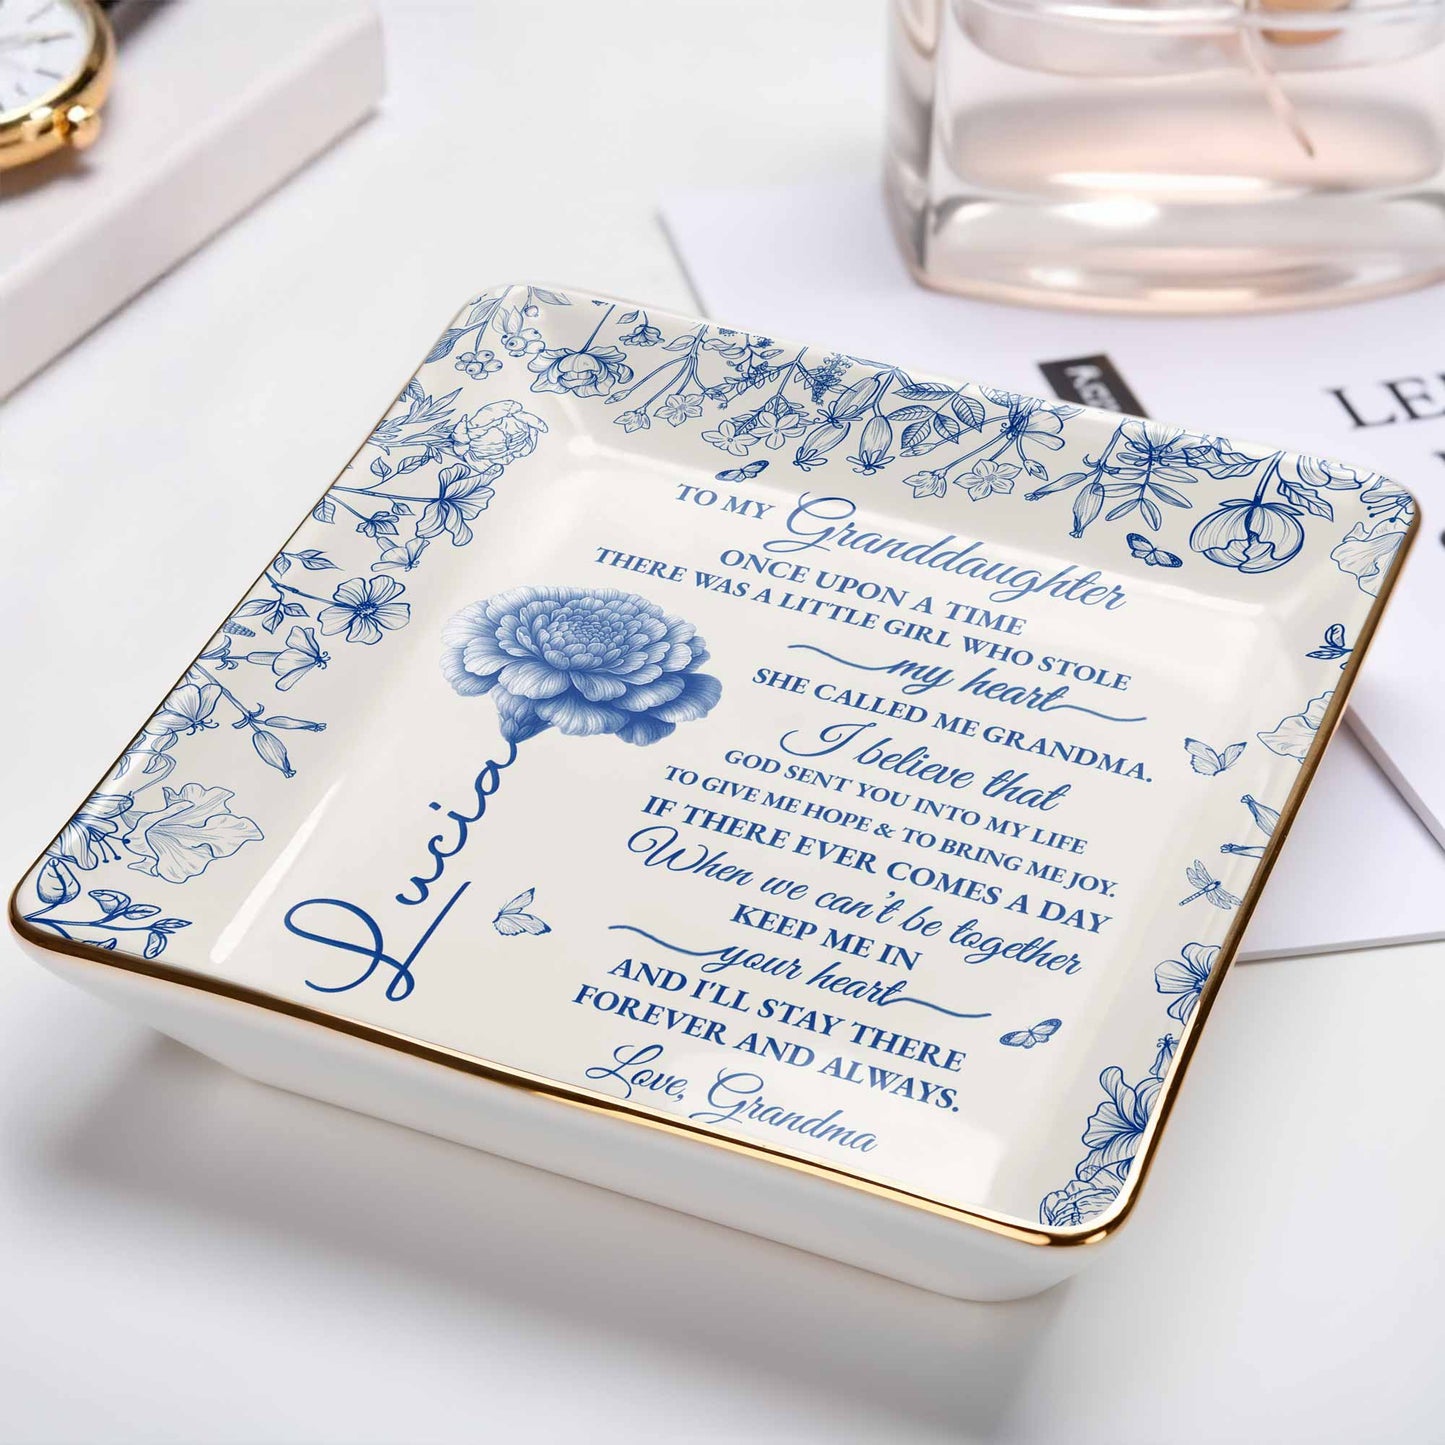 TO MY Granddaughter
ONCE UPON A TIME
THERE WAS A LITTLE GIRL WHO STOLE
my heart
SHE CALLED ME GRANDMA.
I believe that
GOD SENT YOU INTO MY LIFE
TO GIVE ME HOPE & TO BRING ME JOY.
IF THERE EVER COMES A DAY
When we can't be together
KEEP ME IN
your heart
AND I'LL STAY THERE
FOREVER AND ALWAYS.
Love, Grandma
Lucia
LE